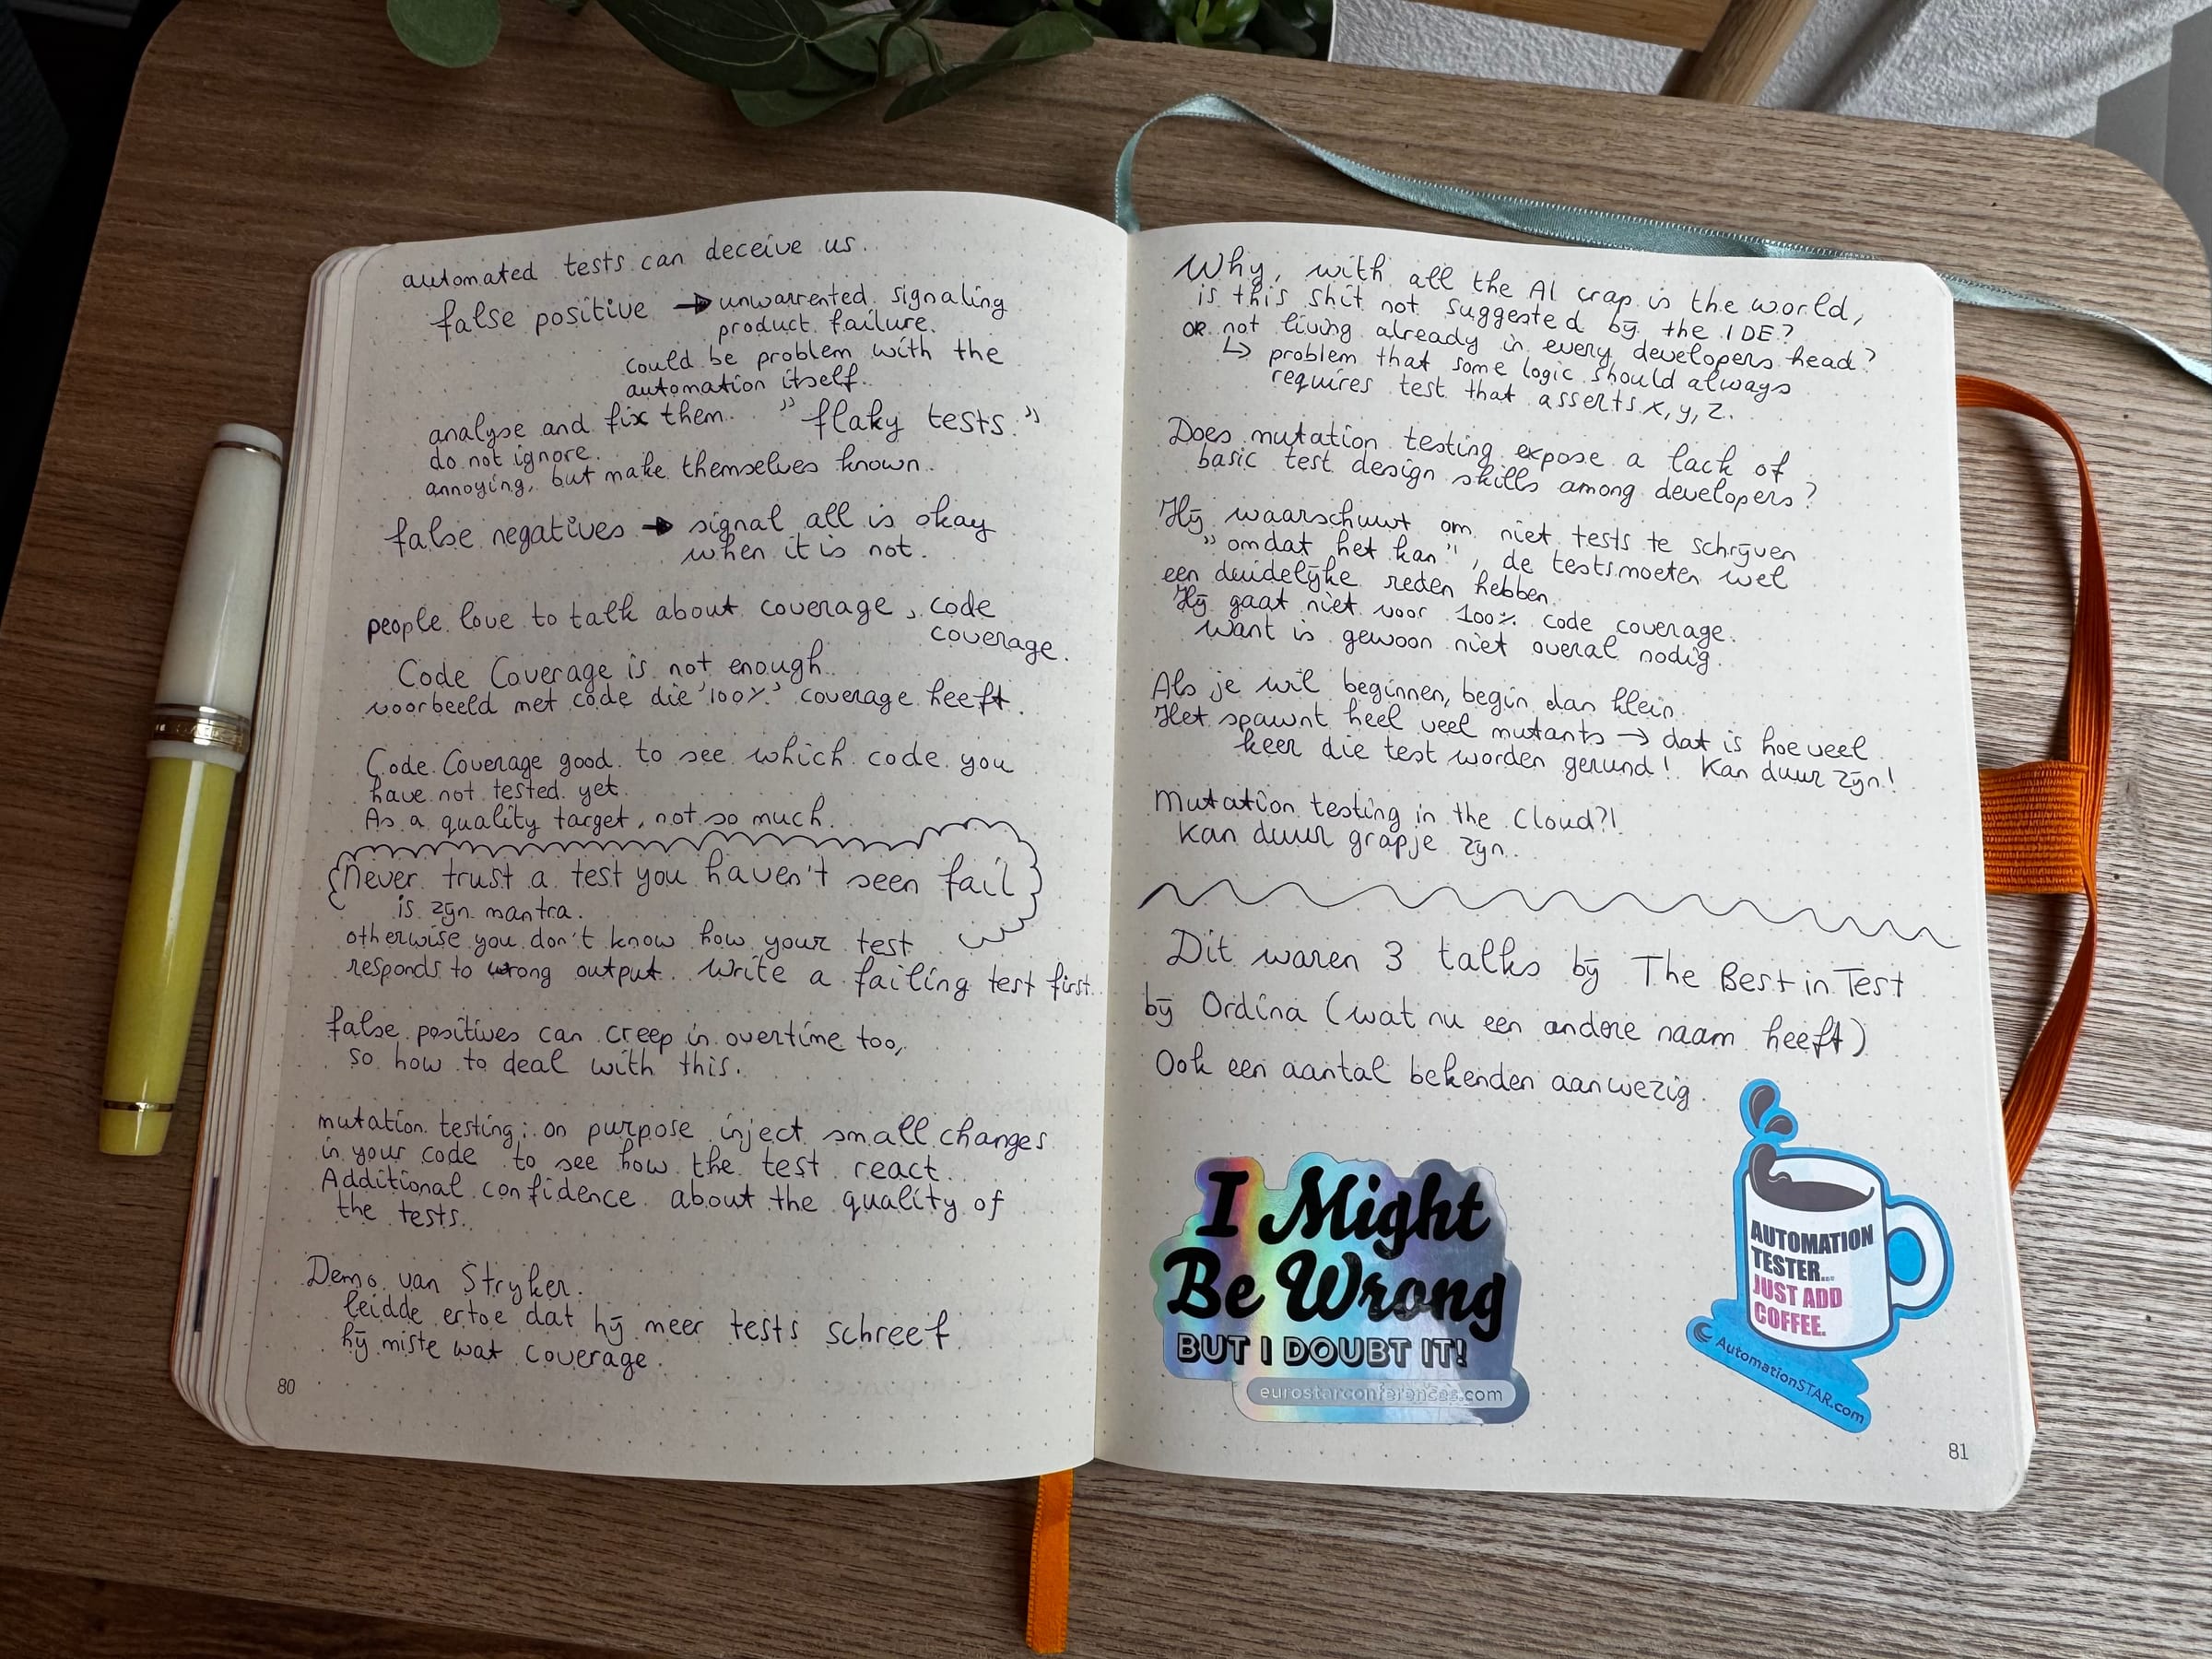 automated tests can deceive us.
false positive → unwarrented signaling
product failure.
could be problem with the
automation itself.
analyse and fix them. "flaky tests."
do not ignore.
annoying, but make themselves known.
false negatives → signal all is okay
when it is not.
people love to talk about coverage, code
coverage.
Code Coverage is not enough.
voorbeeld met code die '100%' coverage heeft.
Code Coverage good to see which code you
have not tested yet.
As a quality target, not so much.
Never trust a test you haven't seen fail
is zijn mantra.
otherwise you don't know how your test
responds to wrong output. Write a failing test first.
false positives can creep in overtime too,
so how to deal with this.
mutation testing: on purpose inject small changes
in your code to see how the test react.
Additional confidence about the quality of
the tests.
Demo van Stryker.
leidde ertoe dat hij meer tests schreef
hij miste wat coverage.
80
Why, with all the AI crap is the world,
is this shit not suggested by the IDE?
OR not living already in every developers head?
↳ problem that some logic should always
requires test that asserts x, y, z.
Does mutation testing expose a lack of
basic test design skills among developers?
Hij waarschuwt om niet tests te schrijven
"omdat het kan", de tests moeten wel
een duidelijke reden hebben.
Hij gaat niet voor 100% code coverage.
Want is gewoon niet overal nodig.
Als je wil beginnen, begin dan klein.
Het spawnt heel veel mutants → dat is hoeveel
keer die test worden gerund! Kan duur zijn!
Mutation testing in the Cloud?!
Kan duur grapje zijn.
Dit waren 3 talks bij The Best in Test
bij Ordina (wat nu een andere naam heeft)
Ook een aantal bekenden aanwezig.
I Might
Be Wrong
BUT I DOUBT IT!
eurostarconferences.com
AUTOMATION
TESTER...
JUST ADD
COFFEE.
AutomationSTAR.com
81